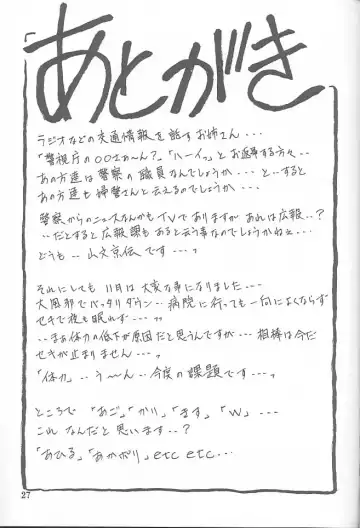 「あとがき
ラジオなどの交通情報を話すお姉さん・・・
「警視庁の○○さぁ〜ん?」「ハーイっ」とお返事する方々・・
あの方達は警察の職員なんでしょうか・・・と・・すると
あの方達も婦警さんと云えるのでしょうか・・・
警察からのニュースなんかもTVでありますがあれは広報・・?
・・だとすると広報課もあると云う事なのでしょうかねェ・・・
どうも・・山文京伝です・・・っ
それにしても11月は大変な事になりました・・・
大風邪でバッタリダウン・・病院に行っても一向によくならず
セキで夜も眠れず・・・
・・まぁ体力の低下が原因だと思うんですが・・・相棒は今だ
セキが止まりません・・・っ
「体力」・・う〜ん・・今度の課題です・・・っ
ところで「あご」「かり」「ます」「W」・・・
これなんだと思います・・?
「あひる」「あかがり」etc etc・・・
27